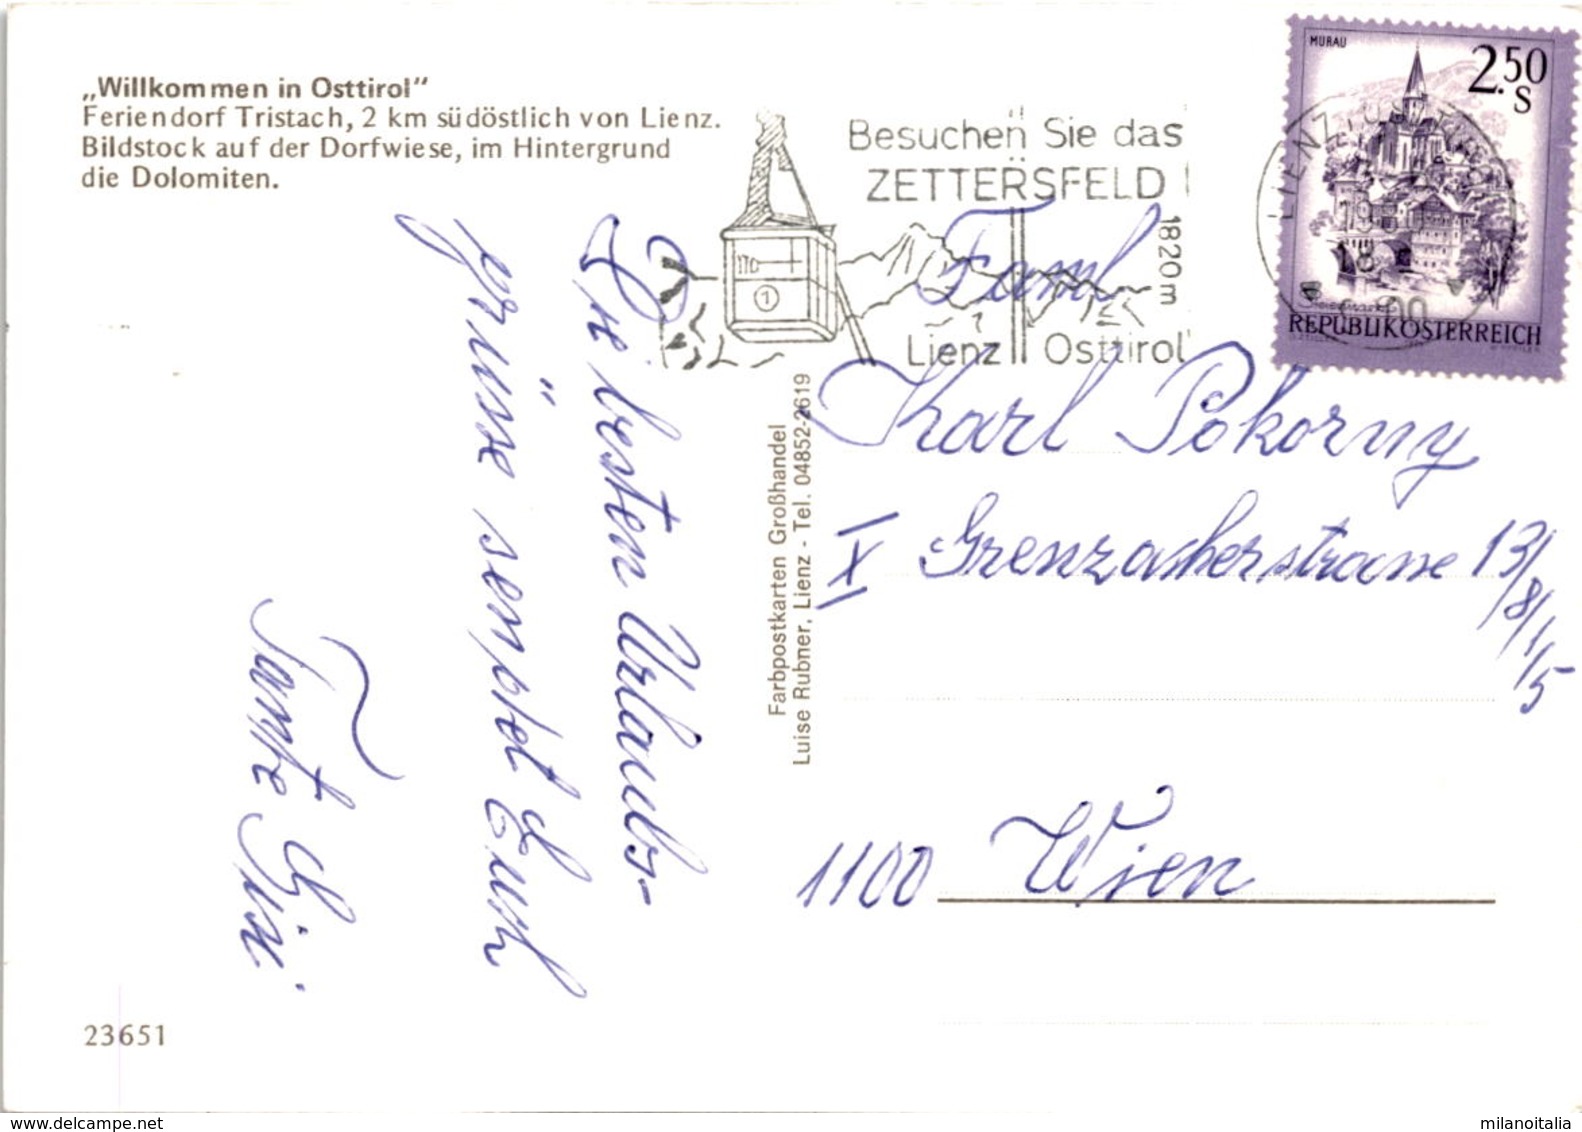 „Willkommen in Osttirol"
Feriendorf Tristach, 2 km südöstlich von Lienz.
Bildstock auf der Dorfwiese, im Hintergrund
die Dolomiten.
Besuchen Sie das
ZETTERSFELD
1820m
Lienz Osttirol
1
MURAU
2.50
S
REPUBLIK ÖSTERREICH
LIENZ
Die besten Urlaubs-
grüsse sendet Euch
Tante
Farbpostkarten Großhandel
Luise Rubner, Lienz - Tel. 04852-2619
Faml
Karl Pokorny
X Grenzackerstrasse 13/
8/1/5
1100 Wien
23651
www.delcampe.net
milanoitalia